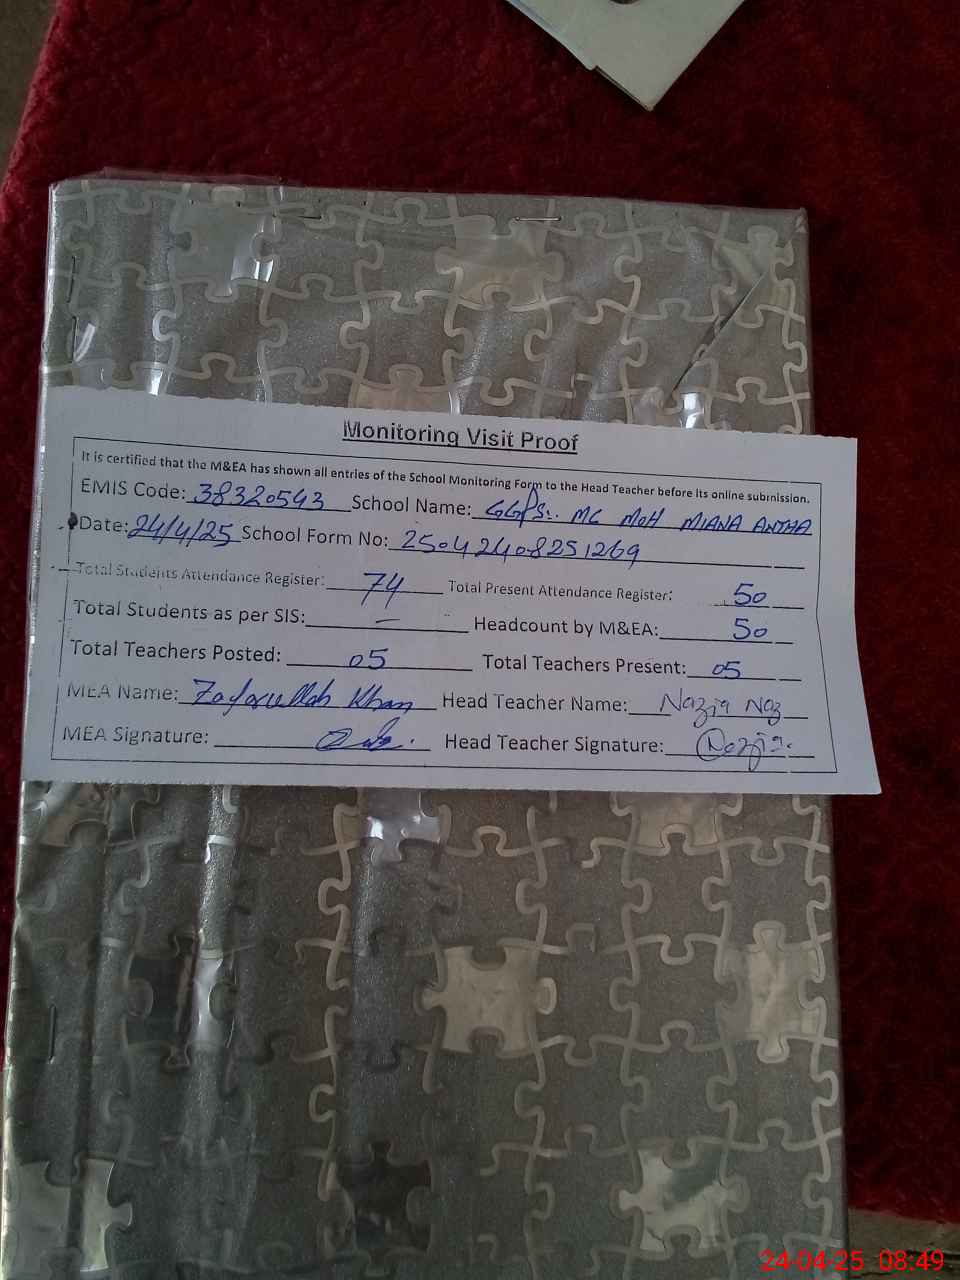 Monitoring Visit Proof
It is certified that the M&EA has shown all entries of the School Monitoring Form to the Head Teacher before its online submission.
EMIS Code: 38320543 School Name: GGPS. MC MOH MIANA ANTHA
Date: 24/4/25 School Form No: 25042408251269
Total Students Attendance Register: 74 Total Present Attendance Register: 50
Total Students as per SIS: — Headcount by M&EA: 50
Total Teachers Posted: 05 Total Teachers Present: 05
MEA Name: Zafarullah Khan Head Teacher Name: Nazia Naz
MEA Signature: Head Teacher Signature: Nazia.
24-04-25 08:49